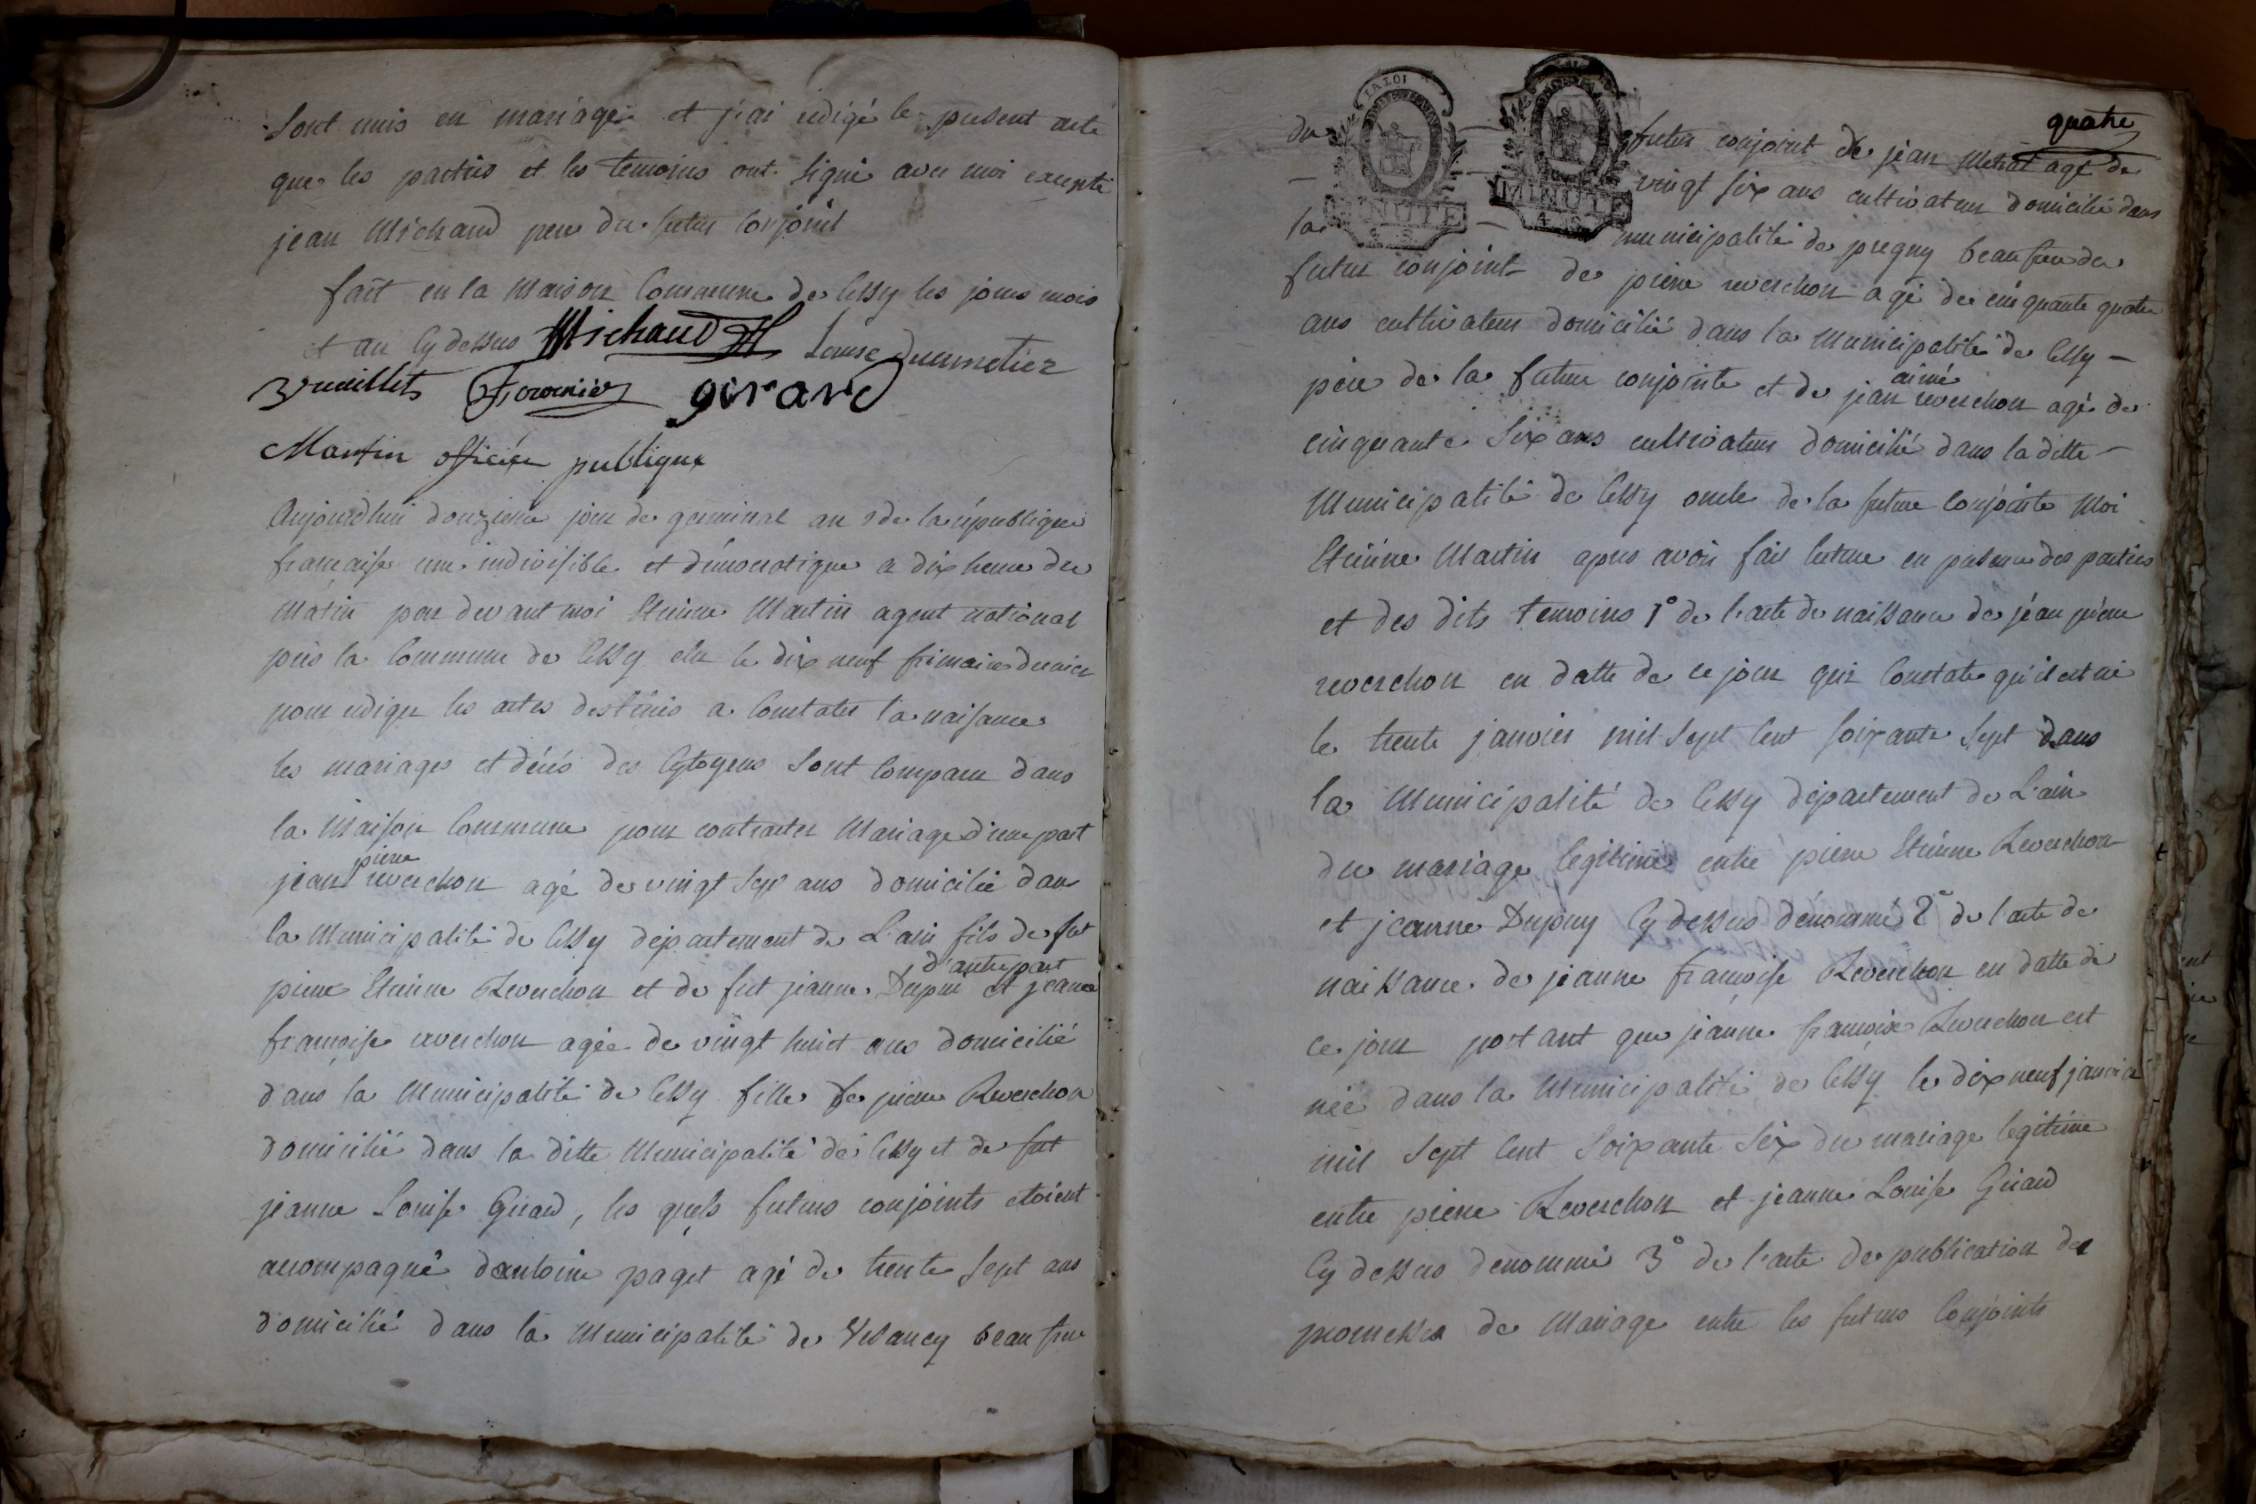 Sont unis en mariage et j'ai rédigé le present acte
que les parties et les temoins ont signé avec moi excepté
jean Michaud pere du futur conjoint
fait en la Maison Commune de Cessy les jours mois
et an Cy dessus Michaud Louise Dumetier
Vuaillet Fournier girard
Martin officier publique
Aujourdhui douzieme jour de germinal an de la république
francaise une indivisible et démocratique a dix heure du
Matin par devant moi Etienne Martin agent national
près la Commune de Cessy élu le dix neuf frimaire dernier
pour rediger les actes destinés a Constater la naisance
les mariages et décés des Cytoyens sont Comparu dans
la Maison Commune pour contracter Mariage d'une part
pierre
jean reverchon agé de vingt sept ans domicilié dans
la Municipalité de Cessy departement de L'ain fils de fut
d'autre part
pierre Etienne Reverchon et de fut jeanne Dupui et jeanne
françoise reverchon agée de vingt huit ans domicilié
dans la Municipalité de Cessy fille de pierre Reverchon
domicilié dans la ditte Municipalité de Cessy et de fut
jeanne Louise Girard, les quels futurs conjoints etoient
acompagné dantoine paget agé de trente sept ans
domicilié dans la Municipalité de Vesancy beau frere
quatre
du futur conjoint de jean Metral agé de
vingt six ans cultivateur domicilié dans
la municipalité de pregny beau frere du
LA LOI
MINUTE
MINUTE
futur conjoint de pierre reverchon agé de cinquante quatre
ans cultivateur domicilié dans la Municipalité de Cessy —
aimé
pere de la future conjointe et de jean reverchon agé de
cinquante six ans cultivateur domicilié dans la ditte —
Municipalité de Cessy oncle de la future Conjointe Moi
Etienne Martin apres avoir fait lecture en presence des parties
et des dits temoins 1° de l'acte de naissance de jean pierre
reverchon en datte de ce jour qui Constate qu'il est né
le trente janvier mil sept Cent soixante sept dans
la Municipalité de Cessy departement de L'ain
du mariage legitime entre pierre Etienne Reverchon
et jeanne Dupuy Cy dessus dénommé 2° de l'acte de
naissance de jeanne françoise Reverchon en datte de
ce jour portant que jeanne françoise Reverchon est
née dans la Municipalité de Cessy le dix neuf janvier
mil sept Cent soixante six du mariage legitime
entre pierre Reverchon et jeanne Louise Girard
Cy dessus denommé 3° de l'acte de publication de
promesses de Mariage entre les futurs Conjoints